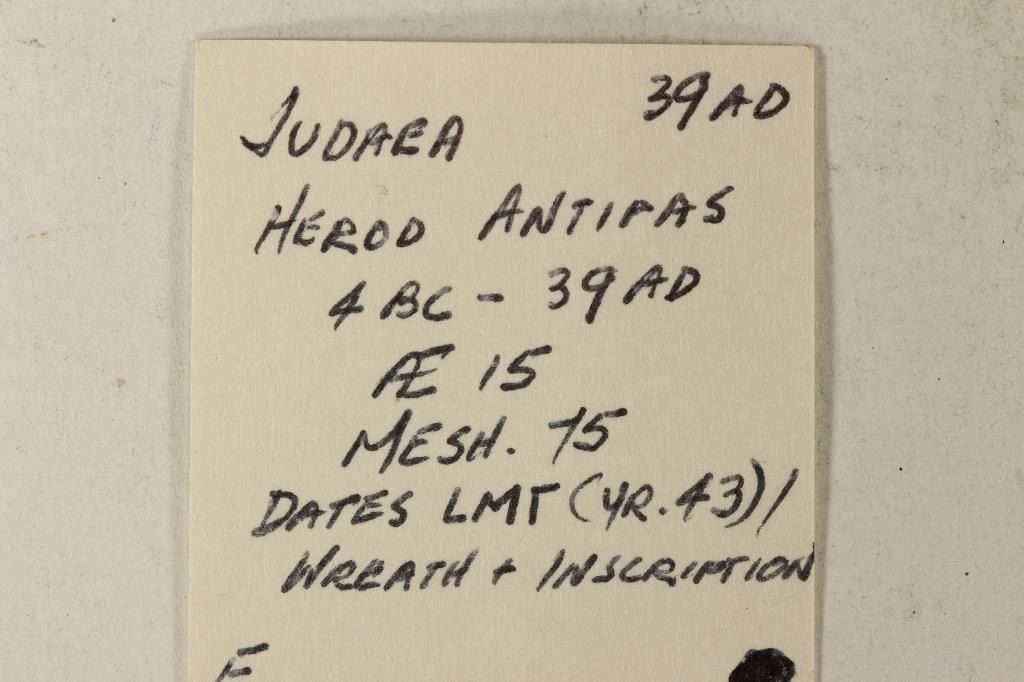 39 AD
JUDAEA
HEROD ANTIPAS
4 BC - 39 AD
Æ 15
MESH. 75
DATES LMΓ (YR. 43) /
WREATH + INSCRIPTION
F